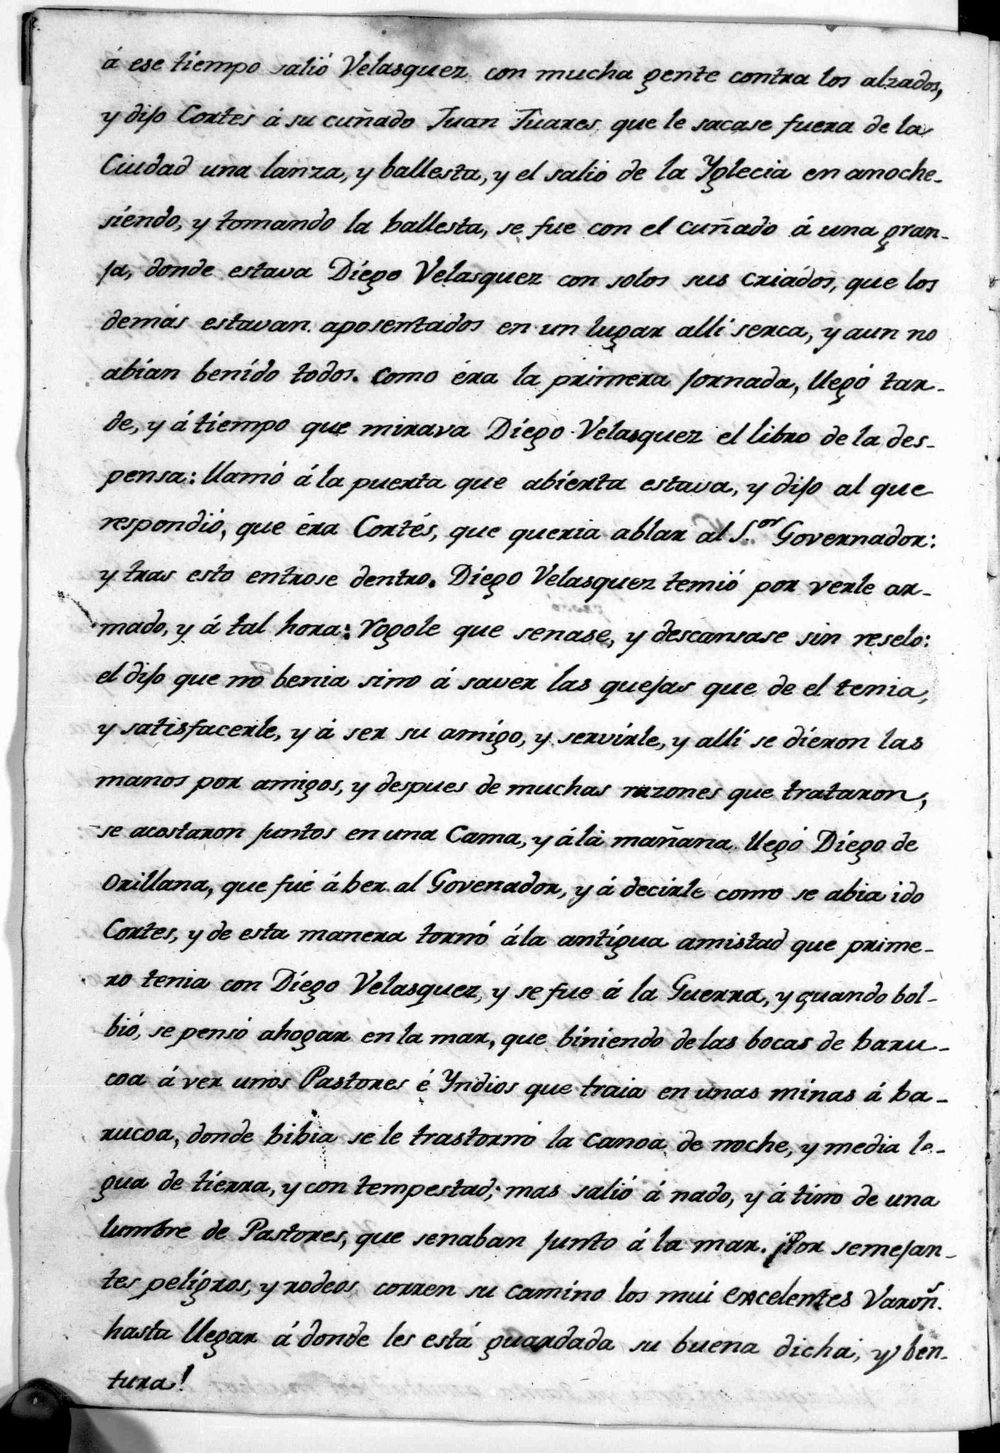 á ese tiempo salió Velasquez con mucha gente contra los alzados,
y dijo Cortes á su cuñado Juan Juares que le sacase fuera de la
Ciudad una lanza, y ballesta, y el salio de la Yglecia en anoche-
siendo, y tomando la ballesta, se fue con el cuñado á una gran-
ja, donde estava Diego Velasquez con solos sus criados, que los
demás estavan aposentados en un lugar alli serca, y aun no
abian benido todos. Como éra la primera jornada, llegó tar-
de, y á tiempo que mirava Diego Velasquez el libro de la des-
pensa: llamó á la puerta que abierta estava, y dijo al que
respondió, que éra Cortés, que queria ablar al S.or Governador:
y tras esto entrose dentro. Diego Velasquez temió por verle ar-
mado, y á tal hora: rogole que senase, y descansase sin reselo:
el dijo que no benia sino á saver las quejas que de el tenia,
y satisfacerle, y á ser su amigo, y servirle, y alli se dieron las
manos por amigos, y despues de muchas razones que trataron,
se acostaron juntos en una Cama, y á la mañana llegó Diego de
Orillana, que fué á ber al Govenador, y á decirle como se abia ido
Cortes, y de esta manera tornó á la antigua amistad que prime-
ro tenia con Diego Velasquez, y se fue á la Guerra, y quando bol-
bió, se pensó ahogar en la mar, que biniendo de las bocas de baru-
coa á ver unos Pastores é Yndios que traia en unas minas á ba-
rucoa, donde bibia se le trastornó la canoa de noche, y media le-
gua de tierra, y con tempestad; mas salió á nado, y á tino de una
lumbre de Pastores, que senaban junto á la mar. ¡Por semejan-
tes peligros, y rodeos corren su camino los mui excelentes Varon.s
hasta llegar á donde les está guardada su buena dicha, y ben-
tura!